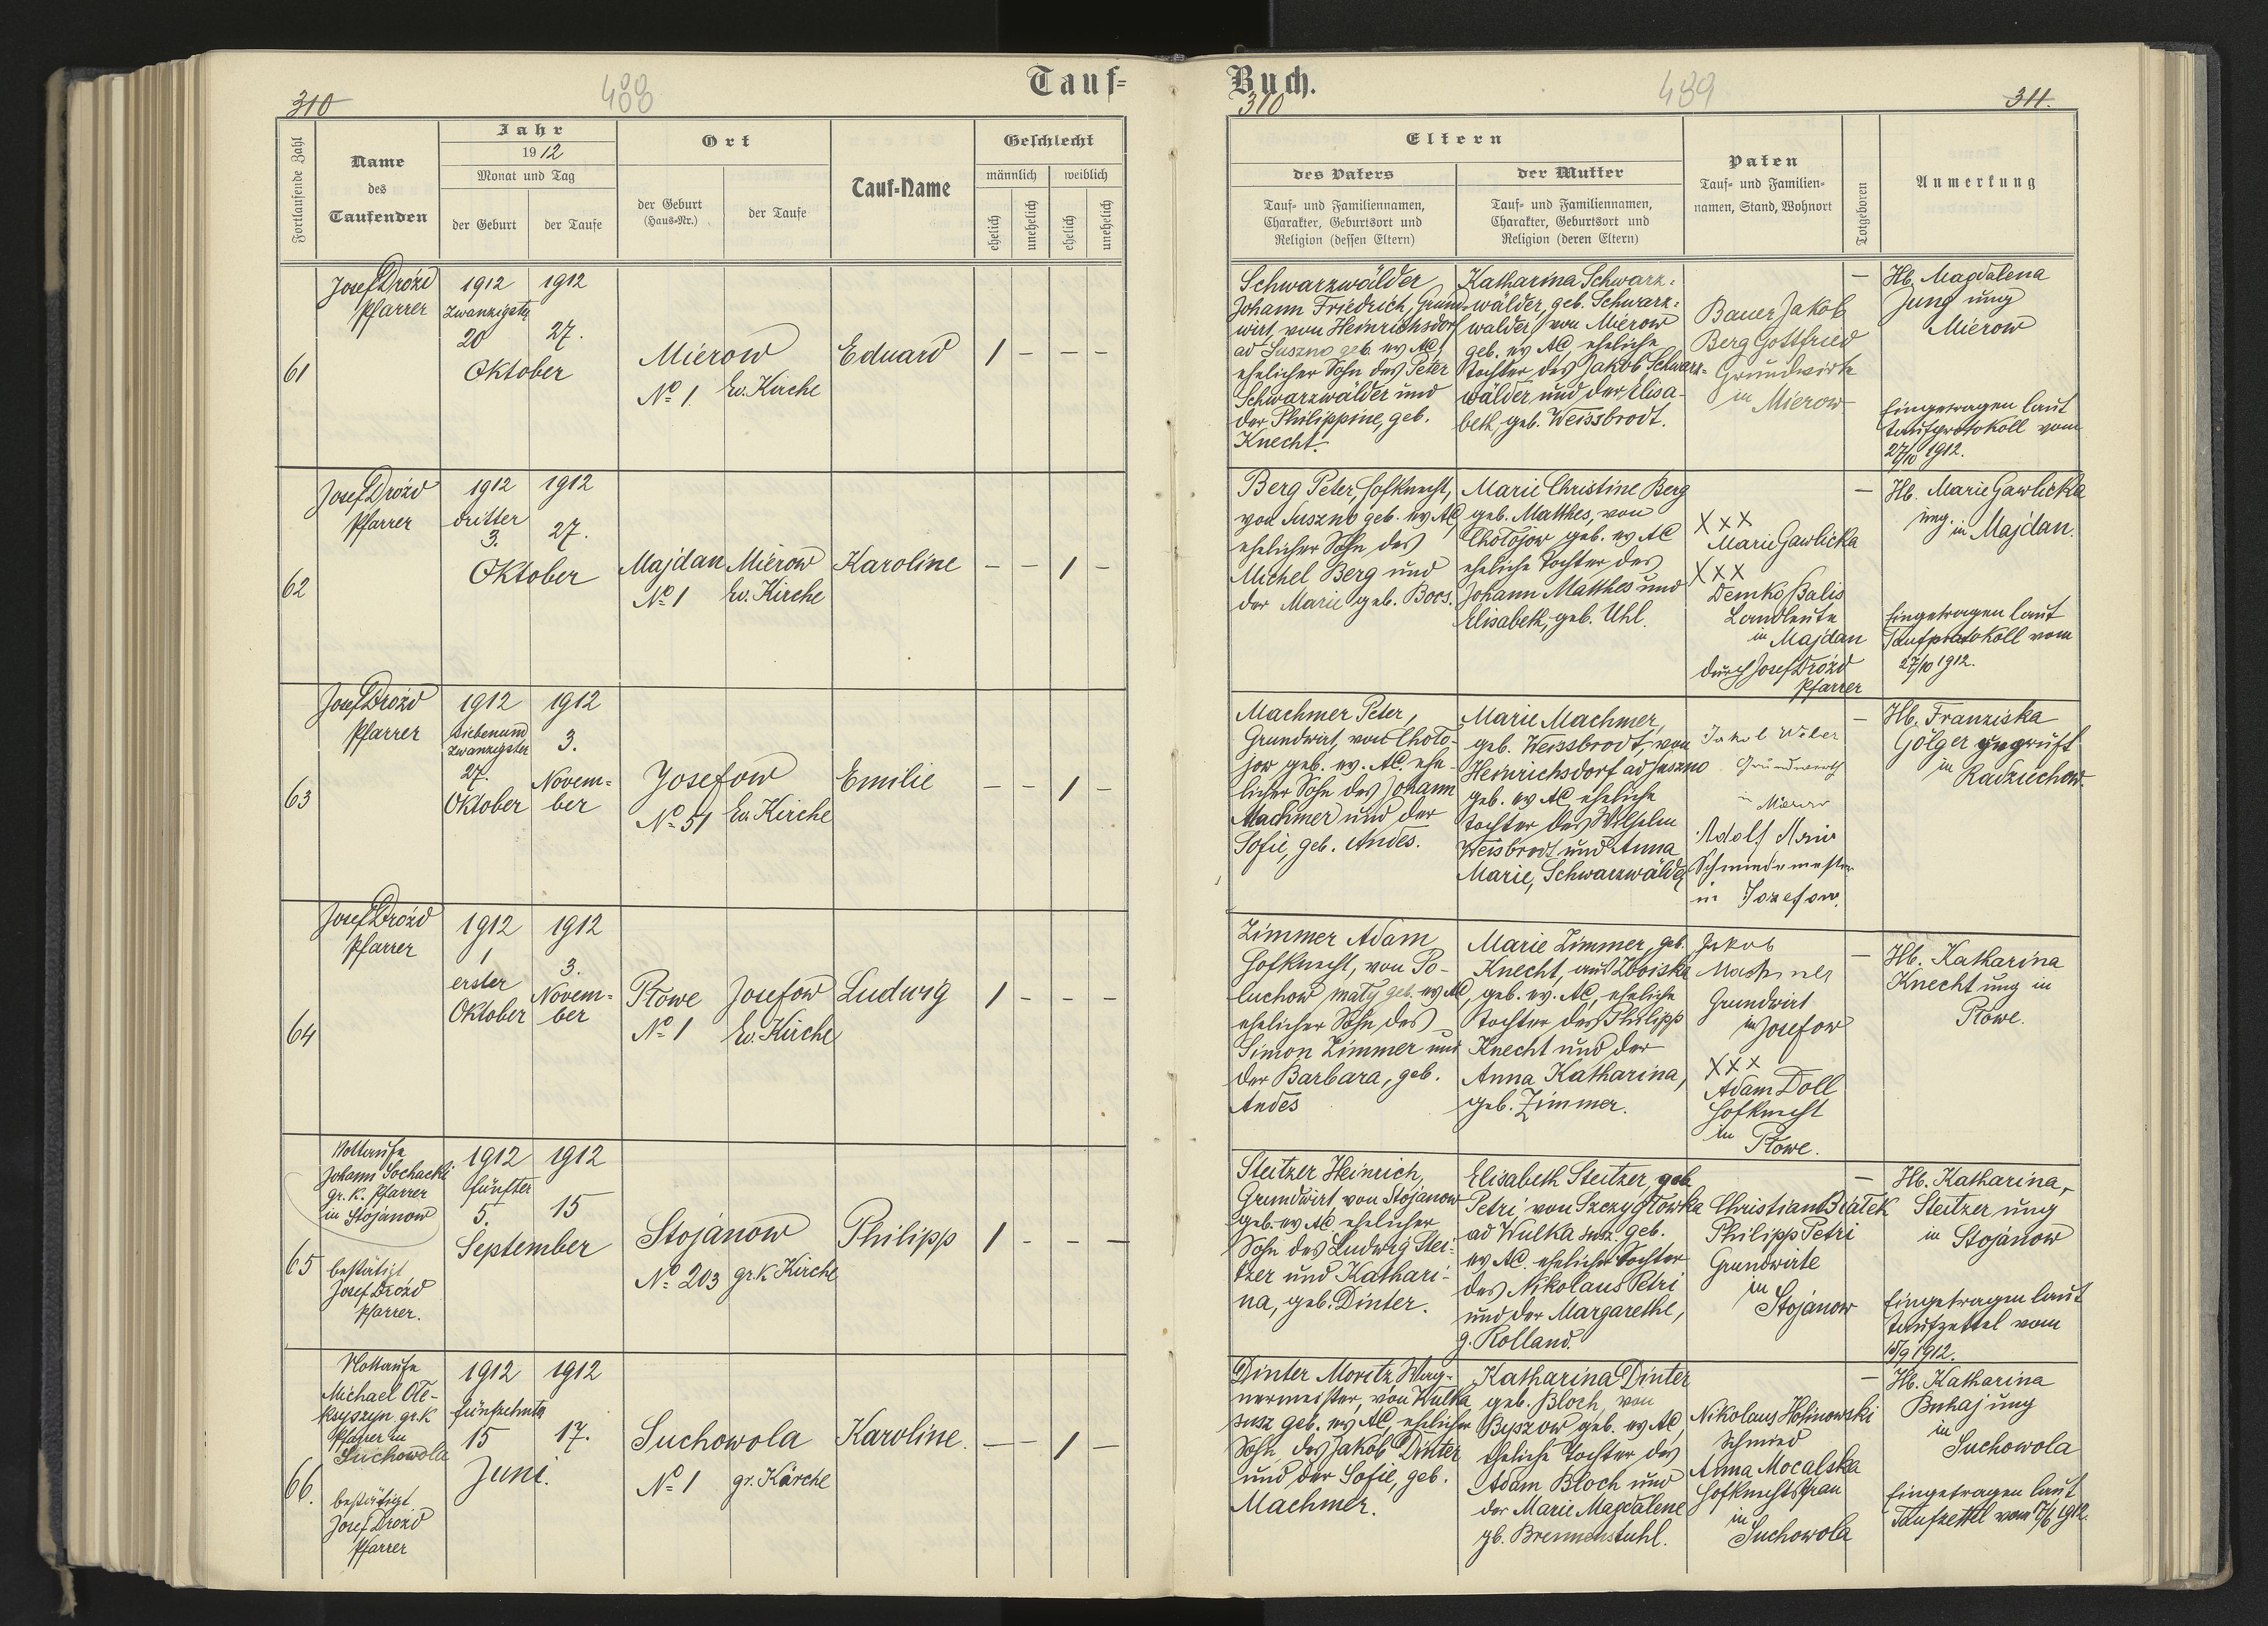 Tauf-
310
488
Fortlaufende Zahl
Name
des
Taufenden
Jahr
1912
Monat und Tag
der Geburt
der Taufe
Ort
der Geburt
(Haus-Nr.)
der Taufe
Tauf-Name
Geschlecht
männlich
weiblich
ehelich
unehelich
ehelich
unehelich
61
Josef Drózd
Pfarrer
1912
zwanzigster
20
Oktober
1912
27.
Mierow
No 1
Ev. Kirche
Eduard
1 – – –
62
Josef Drózd
Pfarrer
1912
dritter
3.
Oktober
1912
27.
Majdan
No 1
Mierow
Ev. Kirche
Karoline
– – 1 –
63
Josef Drózd
Pfarrer
1912
Siebenund
zwanzigster
27.
Oktober
1912
3.
Novem-
ber
Josefow
No 51
Ev. Kirche
Emilie
– – 1 –
64
Josef Drózd
Pfarrer
1912
1
erster
Oktober
1912
3.
Novem-
ber
Płowe
No 1
Josefow
Ev. Kirche
Ludwig
1 – – –
65
Nottaufe
Johann Sochacki
gr. K. Pfarrer
in Stojanow
bestätigt
Josef Drózd
Pfarrer.
1912
fünfter
5.
September
1912
15
Stojanow
No 203
gr. K Kirche
Philipp
1 – – –
66.
Nottaufe
Michael Ole-
ksyszyn gr. K
Pfarrer in
Suchowola
bestätigt
Josef Drózd
Pfarrer
1912
fünfzehnter
15
Juni.
1912
17.
Suchowola
No 1
gr. Kirche
Karoline.
– – 1 –
Buch.
310
489
311.
Eltern
des Vaters
Tauf- und Familiennamen,
Charakter, Geburtsort und
Religion (dessen Eltern)
der Mutter
Tauf- und Familiennamen,
Charakter, Geburtsort und
Religion (deren Eltern)
Paten
Tauf- und Familien-
namen, Stand, Wohnort
Totgeboren
Anmerkung
Schwarzwälder
Johann Friedrich, Grund-
wirt, von Heinrichsdorf
ad Suszno geb. ev AC,
ehelicher Sohn des Peter
Schwarzwälder und
der Philippine, geb.
Knecht.
Katharina Schwarz-
wälder, geb. Schwarz-
walder, von Mierow
geb. ev AC eheliche
Tochter des Jakob Schwarz-
wälder und der Elisa-
beth, geb. Weissbrodt.
Bauer Jakob
Berg Gottfried
Grundwirte
in Mierow
–
Hb. Magdalena
Jung ung
Mierow
Eingetragen laut
Taufprotokoll vom
27/10 1912.
Berg Peter, Hofknecht,
von Suszno geb. ev AC,
ehelicher Sohn des
Michel Berg und
der Marie geb. Boos.
Marie Christine Berg
geb. Matthes, von
Chołojow geb. ev AC
eheliche Tochter des
Johann Matthes und
Elisabeth, geb. Uhl.
XXX
Marie Gawlicka
XXX
Demko Balis
Landleute
in Majdan
durch Josef Drózd
Pfarrer
–
Hb. Marie Gawlicka
ung. in Majdan.
Eingetragen laut
Taufprotokoll vom
27/10 1912.
Machmer Peter,
Grundwirt, von Choło-
jow geb. ev. AC. ehe-
licher Sohn des Johann
Machmer und der
Sofie, geb. Andes.
Marie Machmer,
geb. Weissbrodt, von
Heinrichsdorf ad Suszno
geb. ev AC eheliche
Tochter des Wilhelm
Weisbrodt und Anna
Marie, Schwarzwälder
Grundwirth
in
Adolf
Schmiedemester
in Jozefow.
–
Hb. Franziska
Gölger
in Radziechow.
Zimmer Adam
Hofknecht, von So-
luchow mały geb. ev AC,
ehelicher Sohn des
Simon Zimmer und
der Barbara, geb.
Andes
Marie Zimmer, geb.
Knecht, aus Zboiska
geb. ev. AC, eheliche
Tochter des Philipp
Knecht und der
Anna Katharina,
geb. Zimmer.
Jakob
Grundwirt
in Josefow
XXX
Adam Doll
Hofknecht
in
Płowe.
–
Hb. Katharina
Knecht ung in
Płowe.
Steitzer Heinrich,
Grundwirt von Stojanow
geb. ev AC ehelicher
Sohn des Ludwig Stei-
tzer und Kathari-
na, geb. Dinter.
Elisabeth Steitzer, geb
Petri von Szczygłowka
ad Wulka susz. geb.
ev AC. eheliche Tochter
des Nikolaus Petri
und der Margarethe,
g. Rolland.
Christian Białek
Philipp Petri
Grundwirte
in
Stojanow
–
Hb. Katharina,
Steitzer ung
in Stojanow
Eingetragen laut
Taufzettel vom
15/9 1912.
Dinter Moritz, Wag-
nermeister, von Wulka
susz geb. ev AC, ehelicher
Sohn des Jakob Dinter
und der Sofie, geb.
Machmer.
Katharina Dinter
geb. Bloch, von
Byszow geb. ev AC,
eheliche Tochter des
Adam Bloch und
der Marie Magdalene
gb. Brennenstuhl.
Nikolaus Hosinowski
Schmied
Anna Mocalska
Hofknechtsfrau
in
Suchowola
–
Hb. Katharina
Buhaj ung
in
Suchowola
Eingetragen laut
Taufzettel vom 17/6 1912.